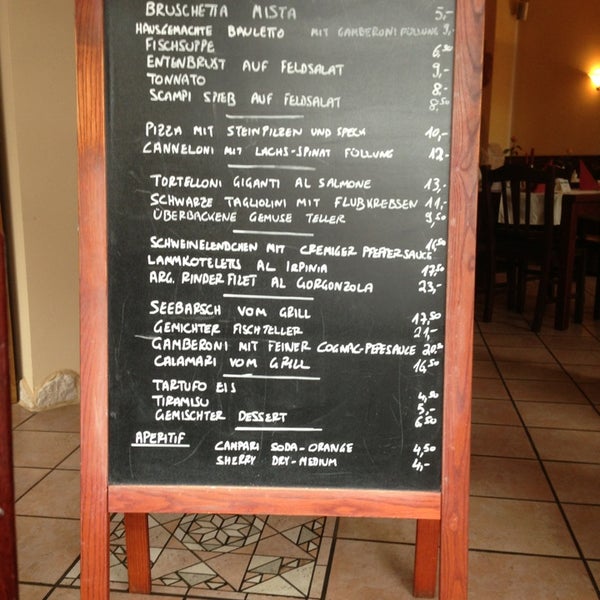 BRUSCHETTA MISTA 5,-
HAUSGEMACHTE BAULETTO MIT GAMBERONI FÜLLUNG 9,-
FISCHSUPPE 6,50
ENTENBRUST AUF FELDSALAT 9,-
TONNATO 8,-
SCAMPI SPIEß AUF FELDSALAT 8,50
PIZZA MIT STEINPILZEN UND SPECK 10,-
CANNELONI MIT LACHS-SPINAT FÜLLUNG 12,-
TORTELLONI GIGANTI AL SALMONE 13,-
SCHWARZE TAGLIOLINI MIT FLUßKREBSEN 11,-
ÜBERBACKENE GEMUSE TELLER 9,50
SCHWEINELENDCHEN MIT CREMIGER PFEFFERSAUCE 16,50
LAMMKOTELETS AL IRPINIA 17,50
ARG. RINDERFILET AL GORGONZOLA 23,-
SEEBARSCH VOM GRILL 17,50
GEMICHTER FISCHTELLER 21,-
GAMBERONI MIT FEINER COGNAC-PEFESAUCE
CALAMARI VOM GRILL 16,50
TARTUFO EIS 4,50
TIRAMISU 5,-
GEMISCHTER DESSERT 6,50
APERITIF
CAMPARI SODA-ORANGE 4,50
SHERRY DRY-MEDIUM 4,-